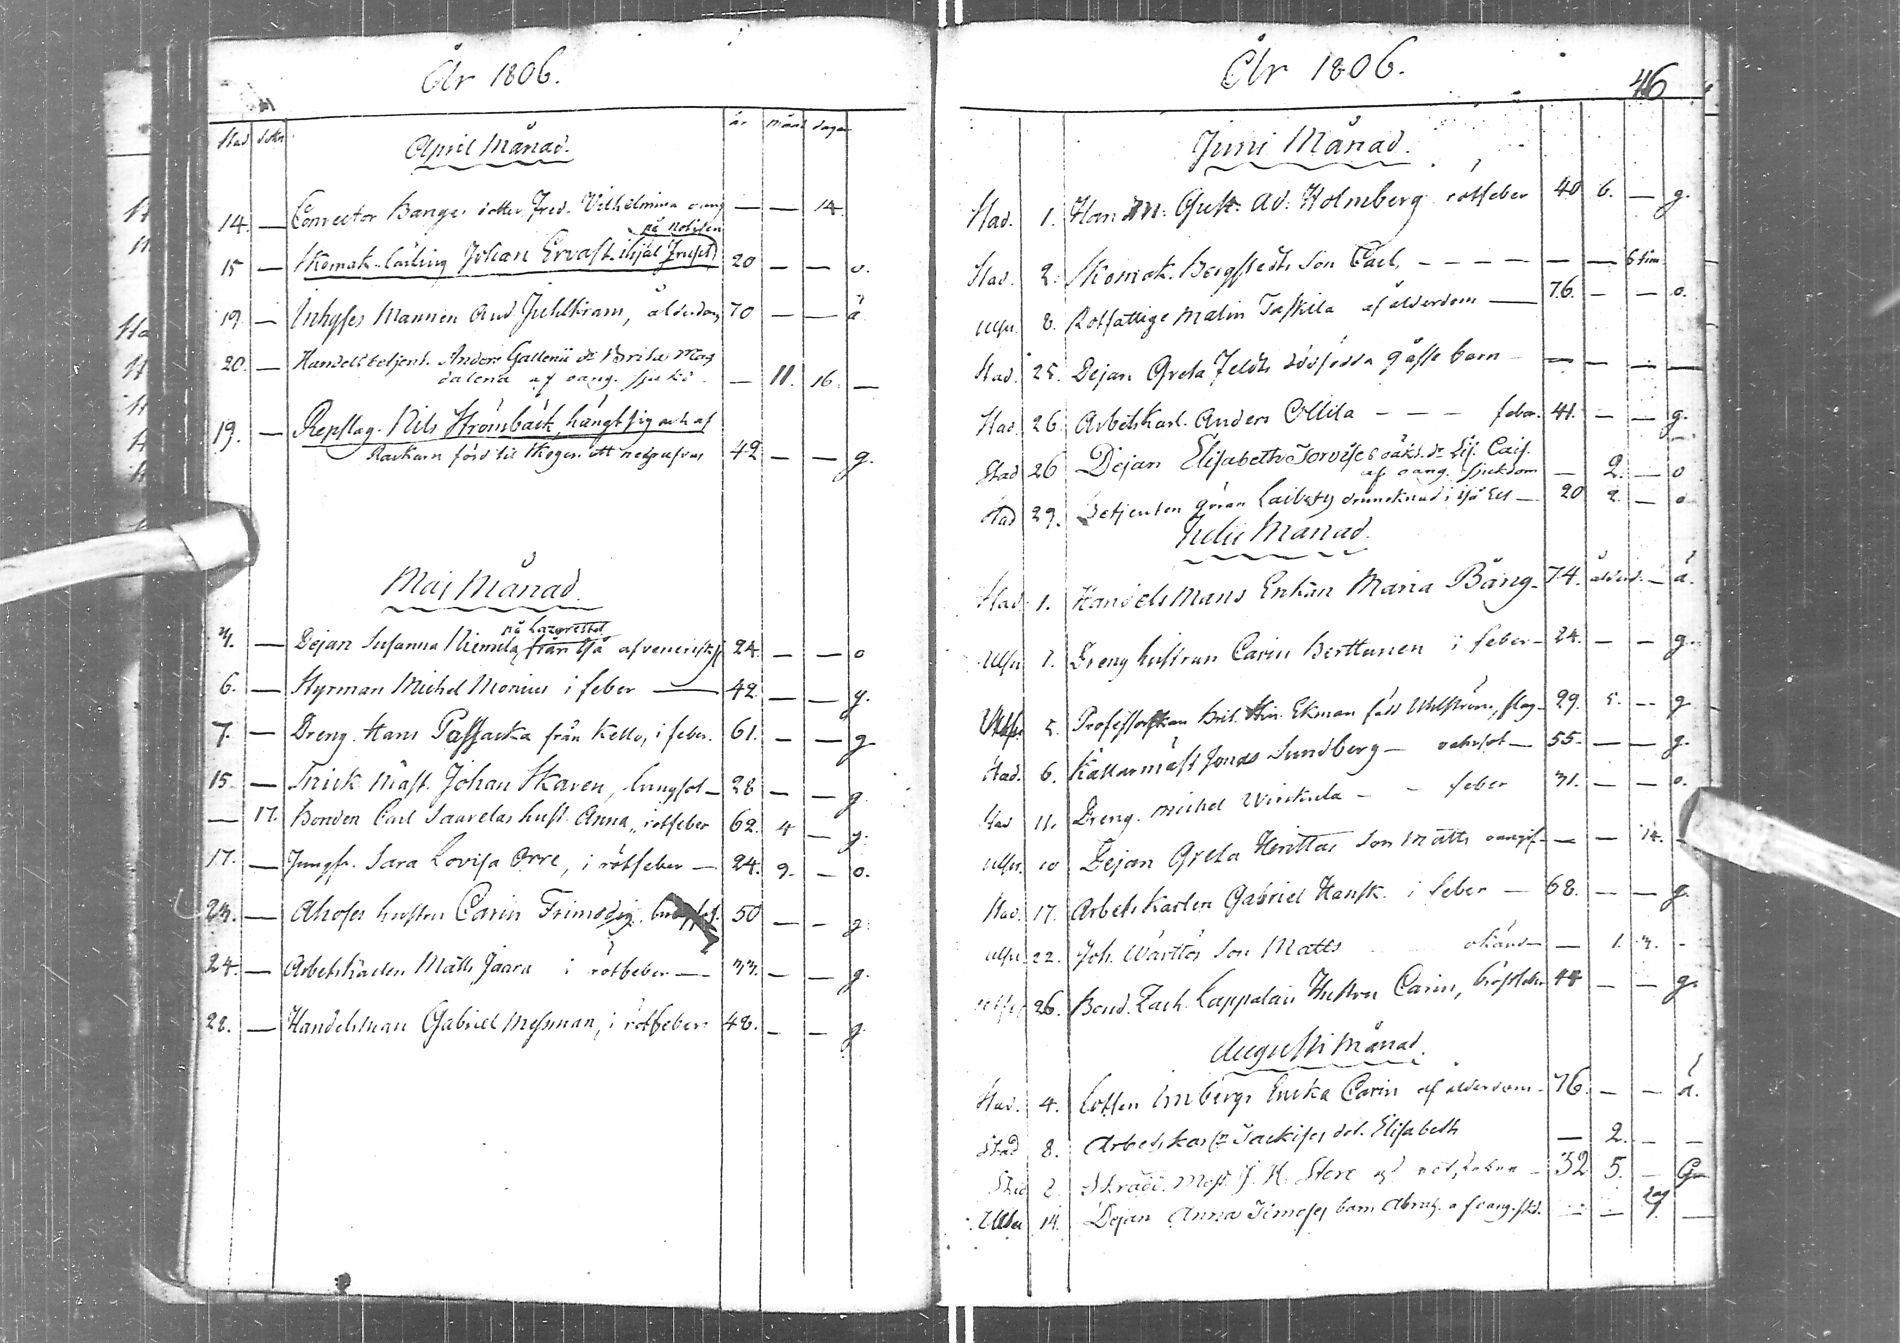 År 1806.
Stad Sokn år Mån dagar
April Månad.
14. — Conrector Banges dotter Fred. Vilhelmina oang — — 14.
på Nobilen
15 — Skomak. Lärling Johan Ervast ihjäl frusit 20 — — o.
19. — Inhyses Mannen And Juhlkram, ålderdom 70 — — ä
20. — Handelsbetjent. Anders Gallenii dr Brita Mag
dalena af oang. sjukd. — 11. 16. —
19. — Repslag. Nils Strömbäck, hängt sig och af
Rackarn förd til skogen att nedgrafvas 42 — — g.
Maj Månad.
på Lazarettet
4. — Dejan Susanna Niemila från Ijå af venerisk 24. — — o
6. — Styrman Michel Monius i feber — 42 — — g.
7. — Dreng. Hans Passacka från Kello, i feber. 61. — — g
15 — Snick Mäst. Johan Skaren, lungsot — 28 — — g.
— 17. Bonden Carl Saarelas hust. Anna, i rötfeber 62. 4 — g.
17. — Jungfr. Sara Lovisa Orre, i rötfeber — 24. 9. — o.
23. — Ahoses hustru Carin Frimodig, 50 — — g
24. — Arbetskarlen Matts Jaara i rötfeber — 33. — — g.
28. — Handelsman Gabriel Messman, i rötfeber 48. — — g.
År 1806.
46
Juni Månad.
Stad. 1. Han Gust. Ad. Holmberg rötfeber 40 6. — g.
Stad. 2. Skomak. Bergstedts Son Carl, — — — — — — 6 tim
Ulfsu 8. Rotfattige Malin Taskila af ålderdom — 76. — — o.
Stad. 25. Dejan Greta Feldts dödfödda gåsse barn — — — — —
Stad. 26. Arbetskarl. Anders Ollila — — — feber. 41. — — g.
Stad 26 Dejan Elisabeth Torvises oäkt. dr Lis. Cais.
af oang. sjukdom — 2. — o
Stad 29. Betjenten Göran drunknad i sjö — 20 2. — o
Julii Månad.
Stad 1. Handels Mans Enkan Maria Bäng — 74. ålderd. — ä.
Ulfsu 1. Dreng hustrun Carin Berttunen i feber — 24. — — g.
5. Professorskan Brit. Stin. Ekman född Uhlström, slag — 29. 5. — g
Stad. 6. Källarmäst Jonas Sundberg — — 55. — — g.
Stad 11. Dreng. Michel Winikula — — feber 31. — — o.
Ulfsu. 10 Dejan Greta Henttas Son Matts oang — — 14. —
Stad. 17. Arbets Karlen Gabriel Hansk. i feber — 68. — — g.
Ulfsu 22. Joh. Wärttös Son Matts okänd — — 1. 3. —
26. Bond. Zach. Lappalain Hustru Carin, bröstfeber 48 — — g.
Augusti Månad.
Stad. 4. Lotsen Imbergs Enka Carin af ålderdom — 76. — — ä.
Stad 8. Arbetskarln Jackises dot. Elisabeth — 2. — —
Stad 2. Skrädd. Mäst. J. H. Stere af rötfeber — 32 5. — G
Ulfsu 14. Dejan Anna Simoses barn Abrah. af oang. skd. — — dag
9. —